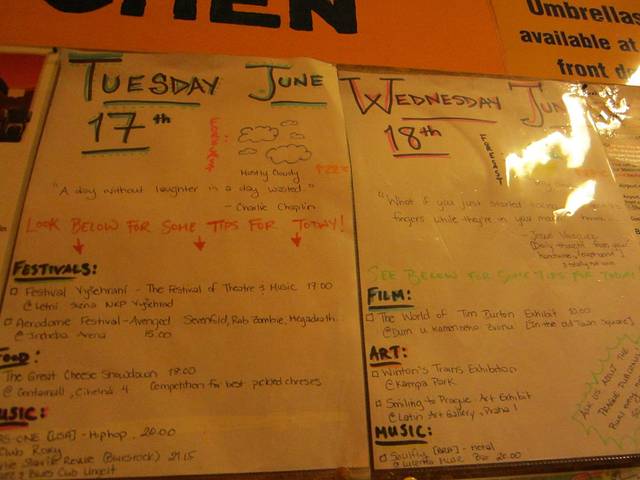 Umbrellas
available at
front
TUESDAY JUNE
17th
FORECAST:
Mostly Cloudy
↑22°C
"A day without laughter is a day wasted."
- Charlie Chaplin
LOOK BELOW FOR SOME TIPS FOR TODAY!
FESTIVALS:
Festival Vyšehraní - The Festival of Theatre & Music 17:00
@Letní Scéna NKP Vyšehrad
Aerodome Festival - Avenged Sevenfold, Rob Zombie, Megadeath
@Tipsport Arena 15.00
FOOD:
The Great Cheese Showdown 18:00
@ Cihelná 4 Competition for best pickled cheeses
MUSIC:
KRS-ONE [USA] - Hiphop, 20.00
Club Roxy
Revue (Bluesrock) 21.15
& Blues Club Ungelt
WEDNESDAY JUN
18th
FORECAST
"What if you just started
fingers while they're in your
SEE BELOW FOR SOME TIPS FOR TODAY
FILM:
The World of Tim Burton Exhibit 10.00
@Dům u Kamenného Zvonu [In the old Town Square]
ART:
Winton's Trains Exhibition
@Kampa Park
Smiling to Prague Art Exhibit
@Latin Art Gallery, Praha 1
MUSIC:
Soulfly [BRA] - metal
Music Bar 20.00
ASK US ABOUT THE
PRAGUE